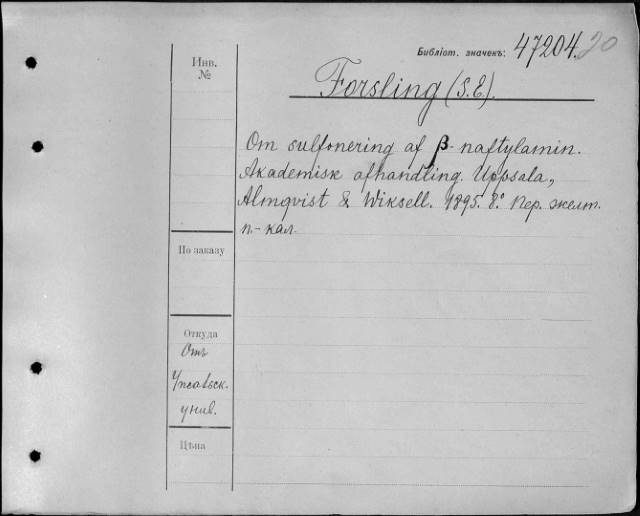 Библіот. значекъ: 47204.20
Инв.
№
Forsling (S.E).
Om sulfonering af β-naftylamin.
Akademisk afhandling. Uppsala,
Almqvist & Wiksell. 1895. 8.° Пер. желт.
п-кал.
По заказу
Откуда
Отъ
Упсальск.
унив.
Цѣна